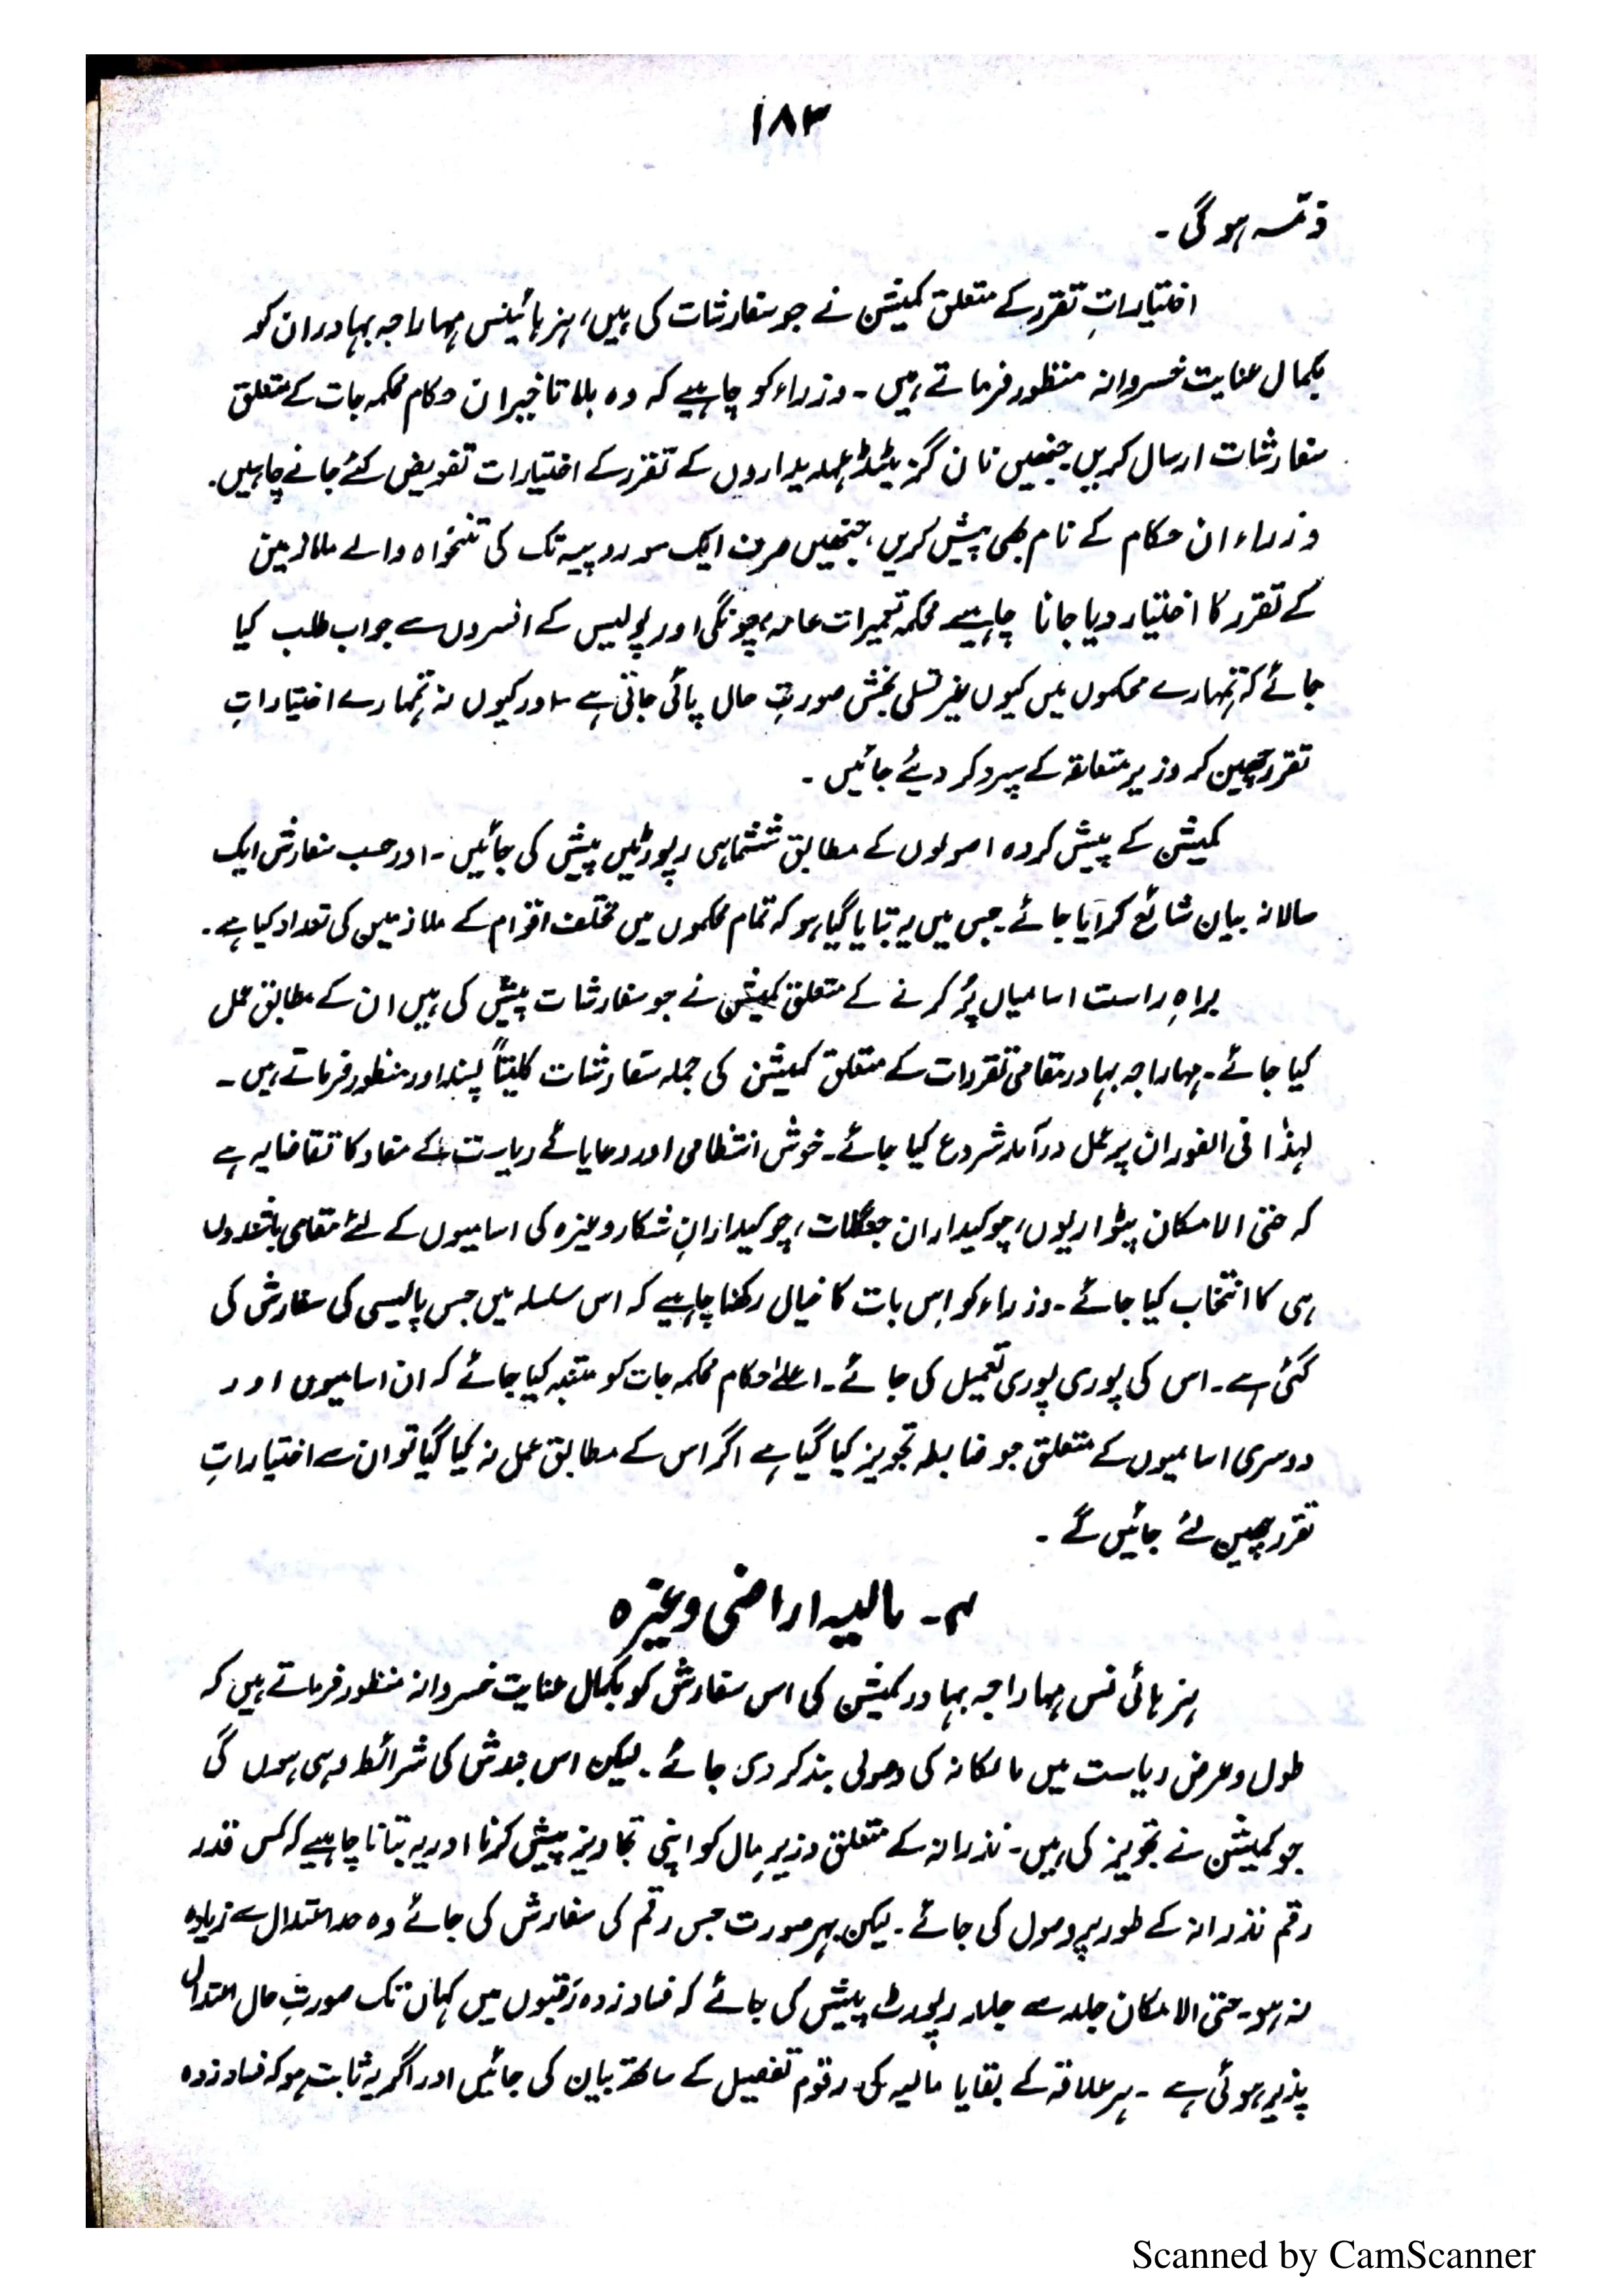 ۱۸۳
ذمّہ ہو گی ۔
اختیاراتِ تقرر کے متعلق کمیشن نے جو سفارشات کی ہیں، ہز ہائینس مہاراجہ بہادر ان کو
بکمال عنایت خسروانہ منظور فرماتے ہیں ۔ وزراء کو چاہیے کہ وہ بلا تاخیر ان حکام محکمہ جات کے متعلق
سفارشات ارسال کریں جنھیں نان گزیٹڈ عہدیداروں کے تقرر کے اختیارات تفویض کئے جانے چاہیں ۔
وزراء ان حکام کے نام بھی پیش کریں، جنھیں صرف ایک سو روپیہ تک کی تنخواہ والے ملازمین
کے تقرر کا اختیار دیا جانا چاہیے محکمہ تعمیرات عامہ، چونگی اور پولیس کے افسروں سے جواب طلب کیا
جائے کہ تمہارے محکموں میں کیوں غیر تسلی بخش صورتِ حال پائی جاتی ہے ۔ اور کیوں نہ تمہارے اختیاراتِ
تقرر چھین کر وزیر متعلقہ کے سپرد کر دیئے جائیں ۔
کمیشن کے پیش کردہ اصولوں کے مطابق ششماہی رپورٹیں پیش کی جائیں ۔ اور حسب سفارش ایک
سالانہ بیان شائع کرایا جائے ۔ جس میں یہ بتایا گیا ہو کہ تمام محکموں میں مختلف اقوام کے ملازمین کی تعداد کیا ہے ۔
براہِ راست اسامیاں پُر کرنے کے متعلق کمیشن نے جو سفارشات پیش کی ہیں ان کے مطابق عمل
کیا جائے ۔ مہاراجہ بہادر مقامی تقررات کے متعلق کمیشن کی جملہ سفارشات کلیتاً پسند اور منظور فرماتے ہیں ۔
لہذا فی الفور ان پر عمل درآمد شروع کیا جائے ۔ خوش انتظامی اور رعایائے ریاست کے مفاد کا تقاضا یہ ہے
کہ حتی الامکان پٹواریوں، چوکیداران جنگلات، چوکیدارانِ شکار وغیرہ کی اسامیوں کے لئے مقامی باشندوں
ہی کا انتخاب کیا جائے ۔ وزراء کو اِس بات کا خیال رکھنا چاہیے کہ اس سلسلہ میں جس پالیسی کی سفارش کی
گئی ہے ۔ اس کی پوری پوری تعمیل کی جائے ۔ اعلےٰ حکام محکمہ جات کو متنبہ کیا جائے کہ ان اسامیوں اور
دوسری اسامیوں کے متعلق جو ضابطہ تجویز کیا گیا ہے اگر اس کے مطابق عمل نہ کیا گیا تو ان سے اختیاراتِ
تقرر چھین لئے جائیں گے ۔
۴۔ مالیہ اراضی وغیرہ
ہز ہائی نس مہاراجہ بہادر کمیشن کی اس سفارش کو بکمال عنایت خسروانہ منظور فرماتے ہیں کہ
طول و عرض ریاست میں مالکانہ کی وصولی بند کر دی جائے ۔ لیکن اس بندش کی شرائط وہی ہوں گی
جو کمیشن نے تجویز کی ہیں ۔ نذرانہ کے متعلق وزیر مال کو اپنی تجاویز پیش کرنا اور یہ بتانا چاہیے کہ کس قدر
رقم نذرانہ کے طور پر وصول کی جائے ۔ لیکن بہر صورت جس رقم کی سفارش کی جائے وہ حد اعتدال سے زیادہ
نہ ہو ۔ حتی الامکان جلد سے جلد رپورٹ پیش کی جائے کہ فساد زدہ رقبوں میں کہاں تک صورتِ حال اعتدال
پذیر ہوئی ہے ۔ ہر علاقہ کے بقایا مالیہ کی رقوم تفصیل کے ساتھ بیان کی جائیں اور اگر یہ ثابت ہو کہ فساد زدہ
Scanned by CamScanner